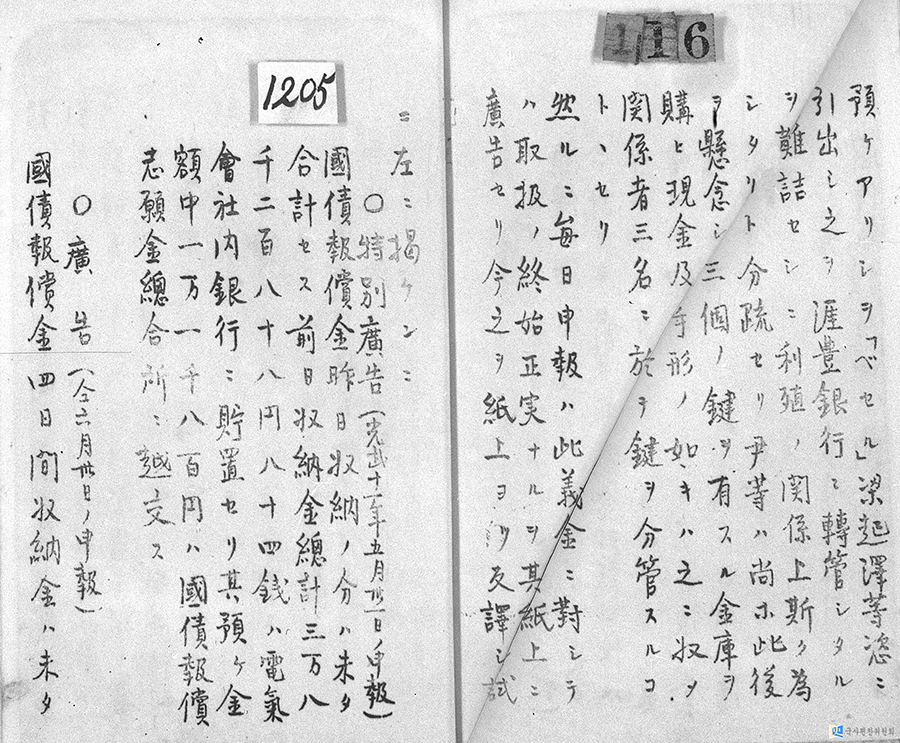 116
預ケアリシヲ「ベセル」梁起澤等恣ニ
引出シ之ヲ 涯豊銀行ニ轉管シタル
ヲ難詰セシニ利殖ノ関係上斯ク為
シタリト分疏セリ尹等ハ尚ホ此後
ヲ懸念シ三個ノ鍵ヲ有スル金庫ヲ
購ヒ現金及手形ノ如キハ之ニ収メ
関係者三名ニ於テ鍵ヲ分管スルコ
トヽセリ
然ルニ毎日申報ハ此義金ニ對シテ
ハ取扱ノ終始正実ナルヲ其紙上ニ
廣告セリ今之ヲ紙上ヨリ反譯シ試
1205
ニ左ニ揭ケンニ
〇特別廣告(光武十一年五月卅一日ノ申報)
國債報償金昨日収納ノ分ハ未タ
合計セス前日収納金總計三万八
千二百八十八円八十四銭ハ電氣
會社内銀行ニ貯置セリ其預ケ金
額中一万一千八百円ハ國債報償
志願金總合所ニ越交ス
〇廣告(仝六月卅日ノ申報)
國債報償金四日間収納金ハ未タ
국사편찬위원회